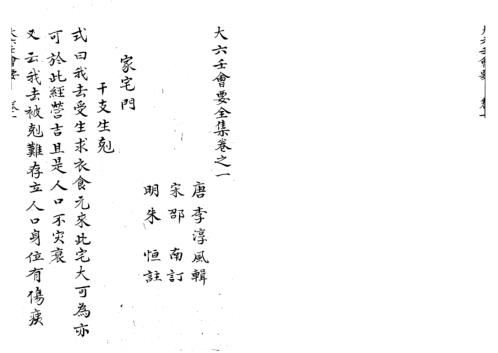 大六壬會要全集卷之一
唐 李淳風輯
宋 邵 南訂
明 朱 恒註
家宅門
干支生剋
式曰我去受生求衣食元來此宅大可為亦
可於此經營吉且是人口不灾衰
又云我去被剋難存立人口身位有傷痍
大六壬會要 卷一